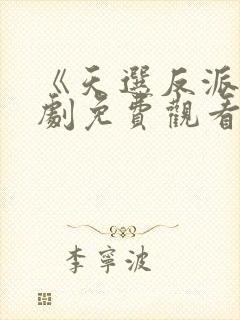 《天選反派
劇免費觀看
李寧波